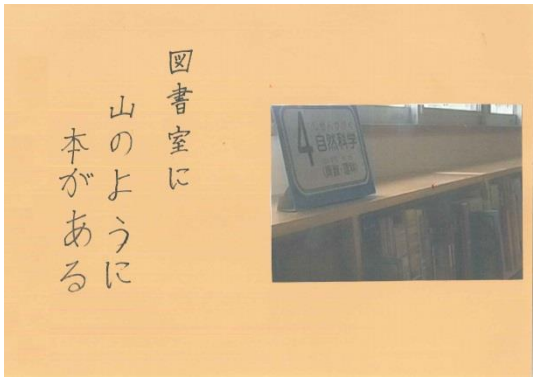 図書室に
山のように
本がある
4
自然科学